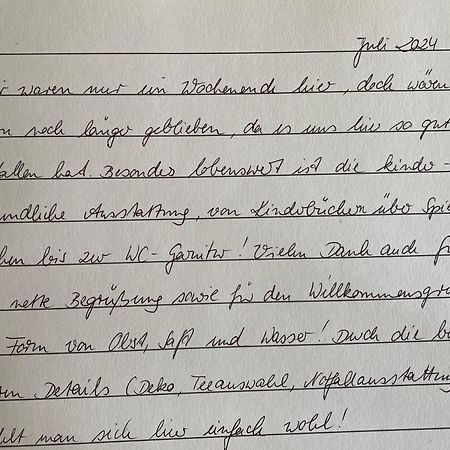 Juli 2024
ir waren nur ein Wochenende hier, doch wären
n noch länger geblieben, da es uns hier so gut
fallen hat. Besonders lobenswert ist die kinder-
undliche Ausstattung, von Kinderbüchern über Spie
chen bis zur WC-Garnitur! Vielen Dank auch fü
nette Begrüßung sowie für den Willkommensgru
Form von Obst, Saft und Wasser! Durch die
en Details (Deko, Teeauswahl, Notfallausstattung
hlt man sich hier einfach wohl!